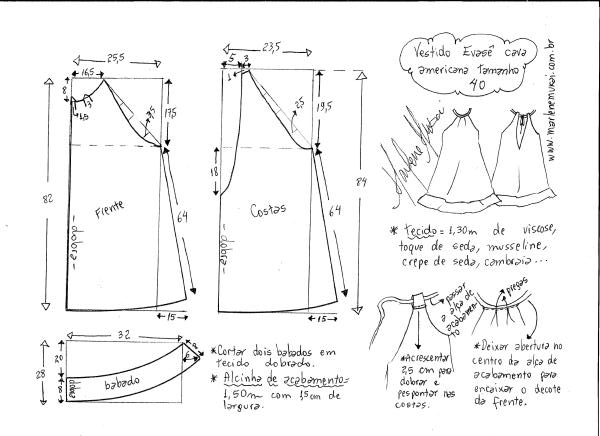 25,5
16,5
8
1,5
2
3,5
17,5
82
Frente
- dobra -
64
15
23,5
5
3
1
2,5
19,5
18
84
Costas
- dobra -
64
15
Vestido Evasê cava
americana tamanho
40
Marlene Mukai
www.marlenemukai.com.br
* tecido = 1,30m de viscose,
toque de seda, musseline,
crepe de seda, cambraia...
32
20
28
8
8
6
dobra
babado
* Cortar dois babados em
tecido dobrado.
* Alcinha de acabamento =
1,50m com 1,5cm de
largura.
passar
a alça de
acabamento
* Acrescentar
2,5 cm para
dobrar e
pespontar nas
costas.
pregas
* Deixar abertura no
centro da alça de
acabamento para
encaixar o decote
da frente.